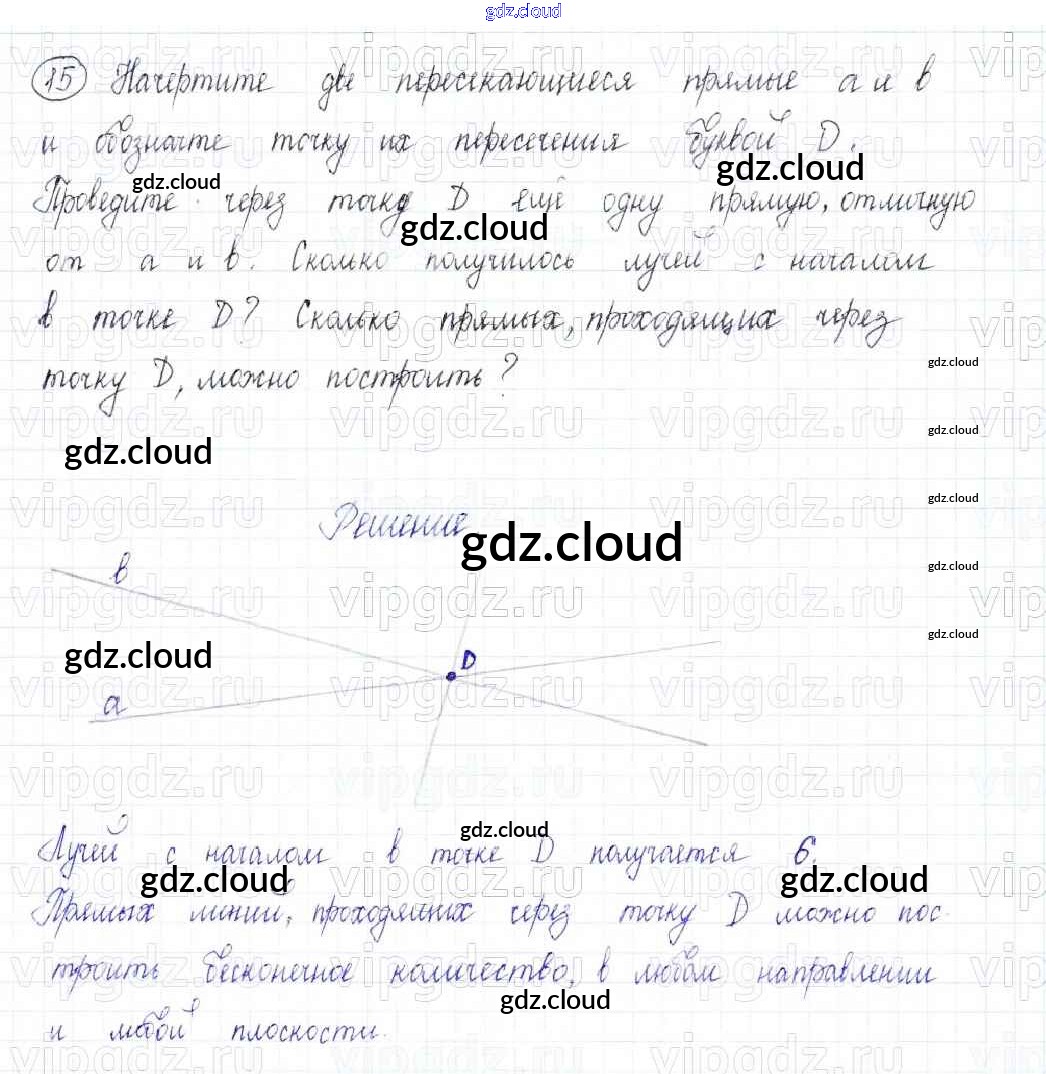 gdz.cloud
15 Начертите две пересекающиеся прямые а и в
и обозначте точку их пересечения буквой D.
gdz.cloud
gdz.cloud
Проведите через точку D ещё одну прямую, отличную
gdz.cloud
от а и в. Сколько получилось лучей с началом
в точке D? Сколько прямых, проходящих через
gdz.cloud
точку D, можно построить?
gdz.cloud
gdz.cloud
gdz.cloud
Решение
gdz.cloud
gdz.cloud
в
gdz.cloud
gdz.cloud
D
а
Лучей с началом в точке D получается 6.
gdz.cloud
gdz.cloud
gdz.cloud
Прямых линий, проходящих через точку D можно пос-
троить бесконечное количество, в любом направлении
gdz.cloud
и любой плоскости.
vipgdz.ru